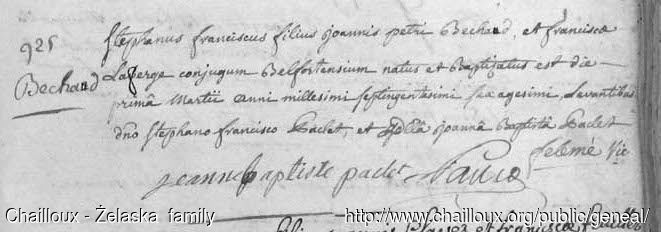 925
Bechaud
Stephanus franciscus filius joannis petri Bechaud, et franciscæ
Laferge conjugum Belfortensium natus et Baptizatus est die
primâ Martii anni millesimi septingentesimi sexagesimi, Levantibus
dno Stephano francisco Paclet, et joannâ Baptistâ Paclet
jeanne baptiste paclet
Vic
Chailloux - Żelaska family
http://www.chailloux.org/public/geneal/